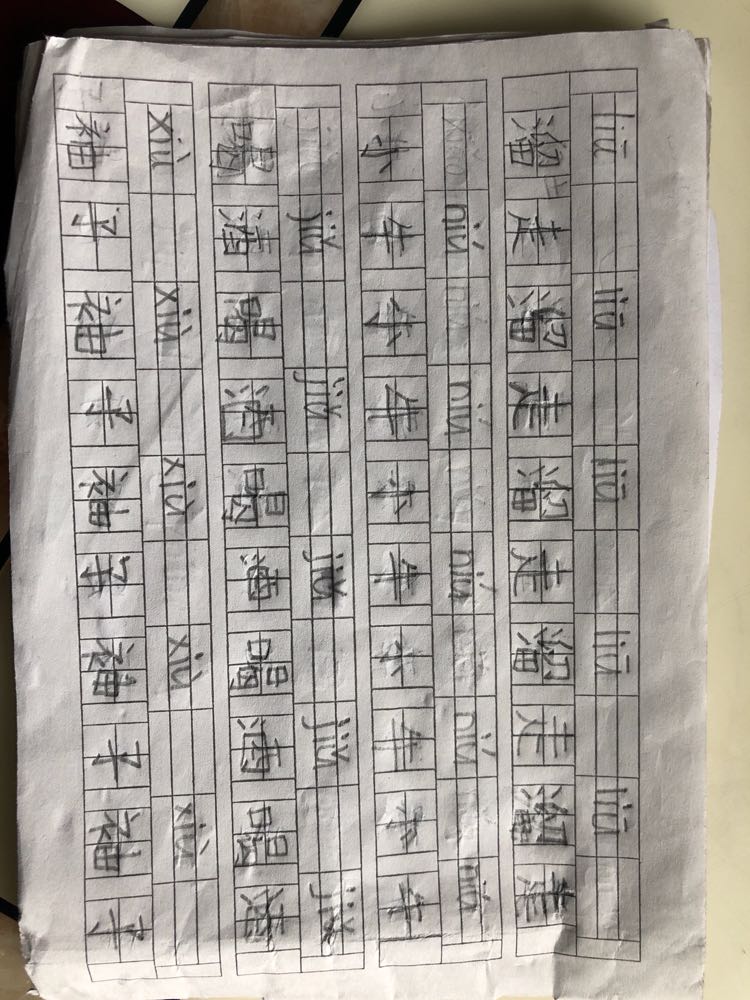 liū liū liū liū liū
溜走溜走溜走溜走溜走
niú niú niú niú niú
小牛小牛小牛小牛小牛
jiǔ jiǔ jiǔ jiǔ jiǔ
喝酒喝酒喝酒喝酒喝酒
xiù xiù xiù xiù xiù
袖子袖子袖子袖子袖子